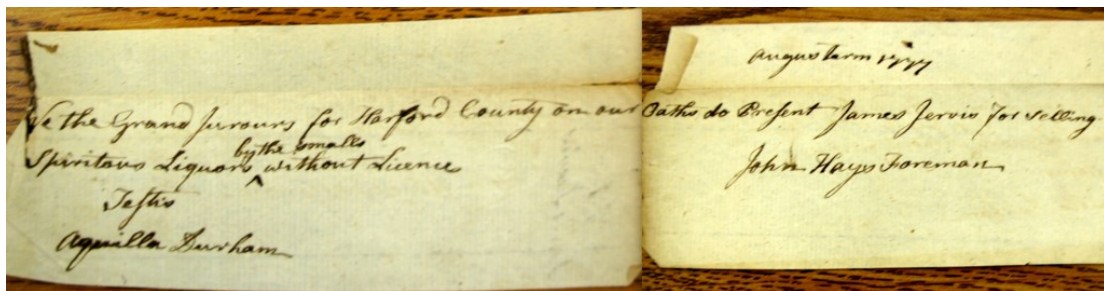 Augus term 1777
We the Grand Jurours for Harford County on our Oaths do Present James Jervis for selling
Spiritous Liquors by the smalls without Licence
John Hays Foreman
Testis
Aquilla Durham